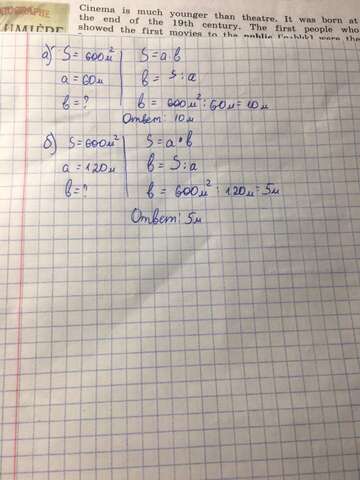 Cinema is much younger than theatre. It was born at
the end of the 19th century. The first people who
showed the first movies to the public
LUMIÈRE
а) S = 600м² S = a b
a = 60м b = S : a
b = ? b = 600м² : 60м = 10м
Ответ: 10м
б) S = 600м² S = a • b
a = 120м b = S : a
b = ? b = 600м² : 120м = 5м
Ответ: 5м